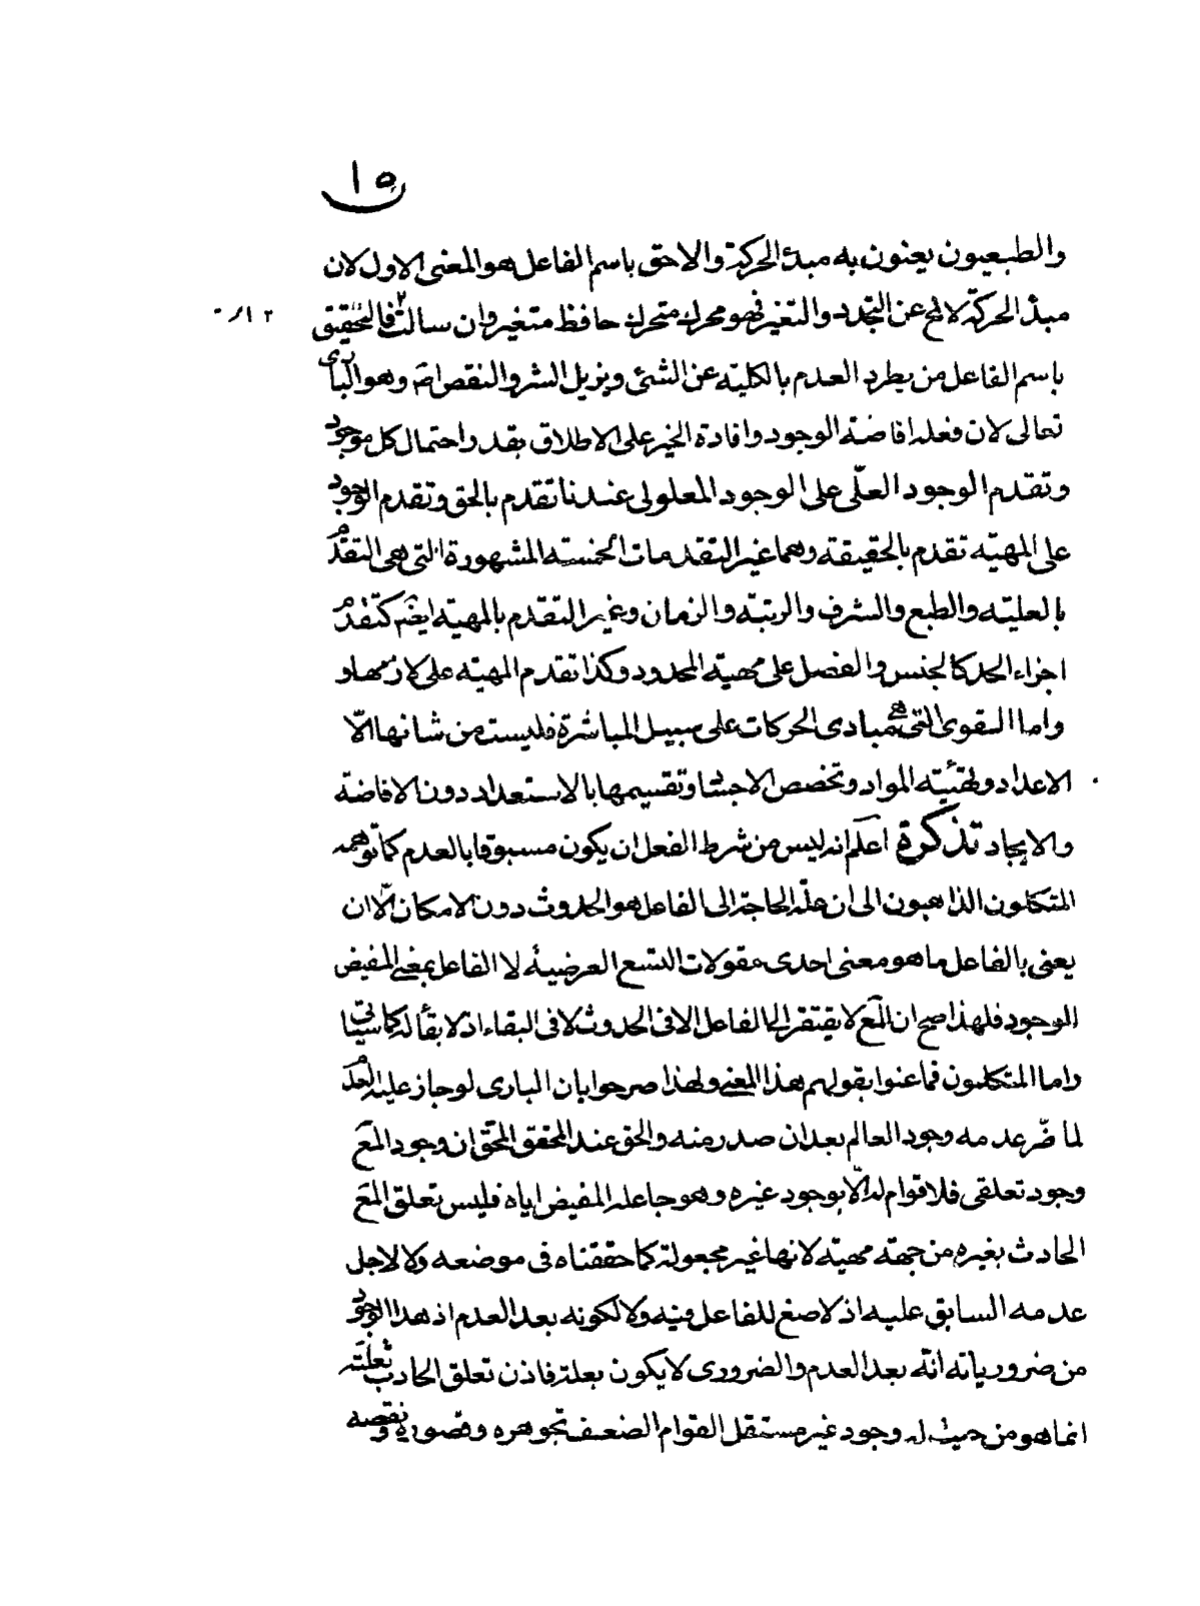 ١٥
والطبيعيون يعنون به مبدأ الحركة والاحق باسم الفاعل هو المعنى الاول لان
مبدأ الحركة لا يخ عن التجدد والتغير فهو محرك متحرك حافظ متغير وان سالت فالتحقيق
باسم الفاعل من يطرد العدم بالكليته عن الشئ ويزيل الشر والنقص اصة وهو البارى
تعالى لان فعله افاضة الوجود وافادة الخير على الاطلاق بقدر احتمال كل موجود
وتقدم الوجود العلّى على الوجود المعلولى عندنا تقدم بالحق وتقدم الوجود
على المهيّه تقدم بالحقيقة وهما غير التقدمات الخمسته المشهورة التى هى التقدم
بالعليته والطبع والشرف والرتبته والزمان وغير التقدم بالمهيّه ايضه كتقدم
اجزاء الحد كالجنس والفصل على مهيّة المحدود وكذا تقدم المهيّه على لازمها و
واما القوى التى هى مبادى الحركات على سبيل المباشرة فليست من شانها الّا
الاعداد وتهيئته المواد وتخصص الاجسا وتقسيمها بالاستعداد دون الافاضة
والايجاد تذكرة اعلم انه ليس من شرط الفعل ان يكون مسبوقا بالعدم كما توهمه
المتكلمون الذاهبون الى ان علّه الحاجة الى الفاعل هو الحدوث دون الامكان الّا ان
يعنى بالفاعل ما هو معنى احدى مقولات التسع العرضية لا الفاعل بمعنى المفيض
للوجود فلهذا صح ان المع لا يفتقر الى الفاعل الا فى الحدوث لا فى البقاء اذ لا بقأ له كما سياتى
واما المتكلمون فما عنوا بقولهم هذا المعنى ولهذا صرحوا بان البارى لو جاز عليه العدم
لما ضّر عدمه وجود العالم بعد ان صدر منه والحق عند المحقق المحّق ان وجود المع
وجود تعلقى فلا قوام له الّا بوجود غيره وهو جاعله المفيض اياه فليس تعلق المع
الحادث بغيره من جهته مهيته لانها غير مجعولة كما حققناه فى موضعه ولا لاجل
عدمه السابق عليه اذ لا صنع للفاعل فيه ولا لكونه بعد العدم اذ هذا الوجود
من ضرورياته انّه بعد العدم والضرورى لا يكون بعلة فاذن تعلق الحادث بعلته
انما هو من حيث له وجود غير مستقل القوام الضعف تجوهره وقصوره ونقصه